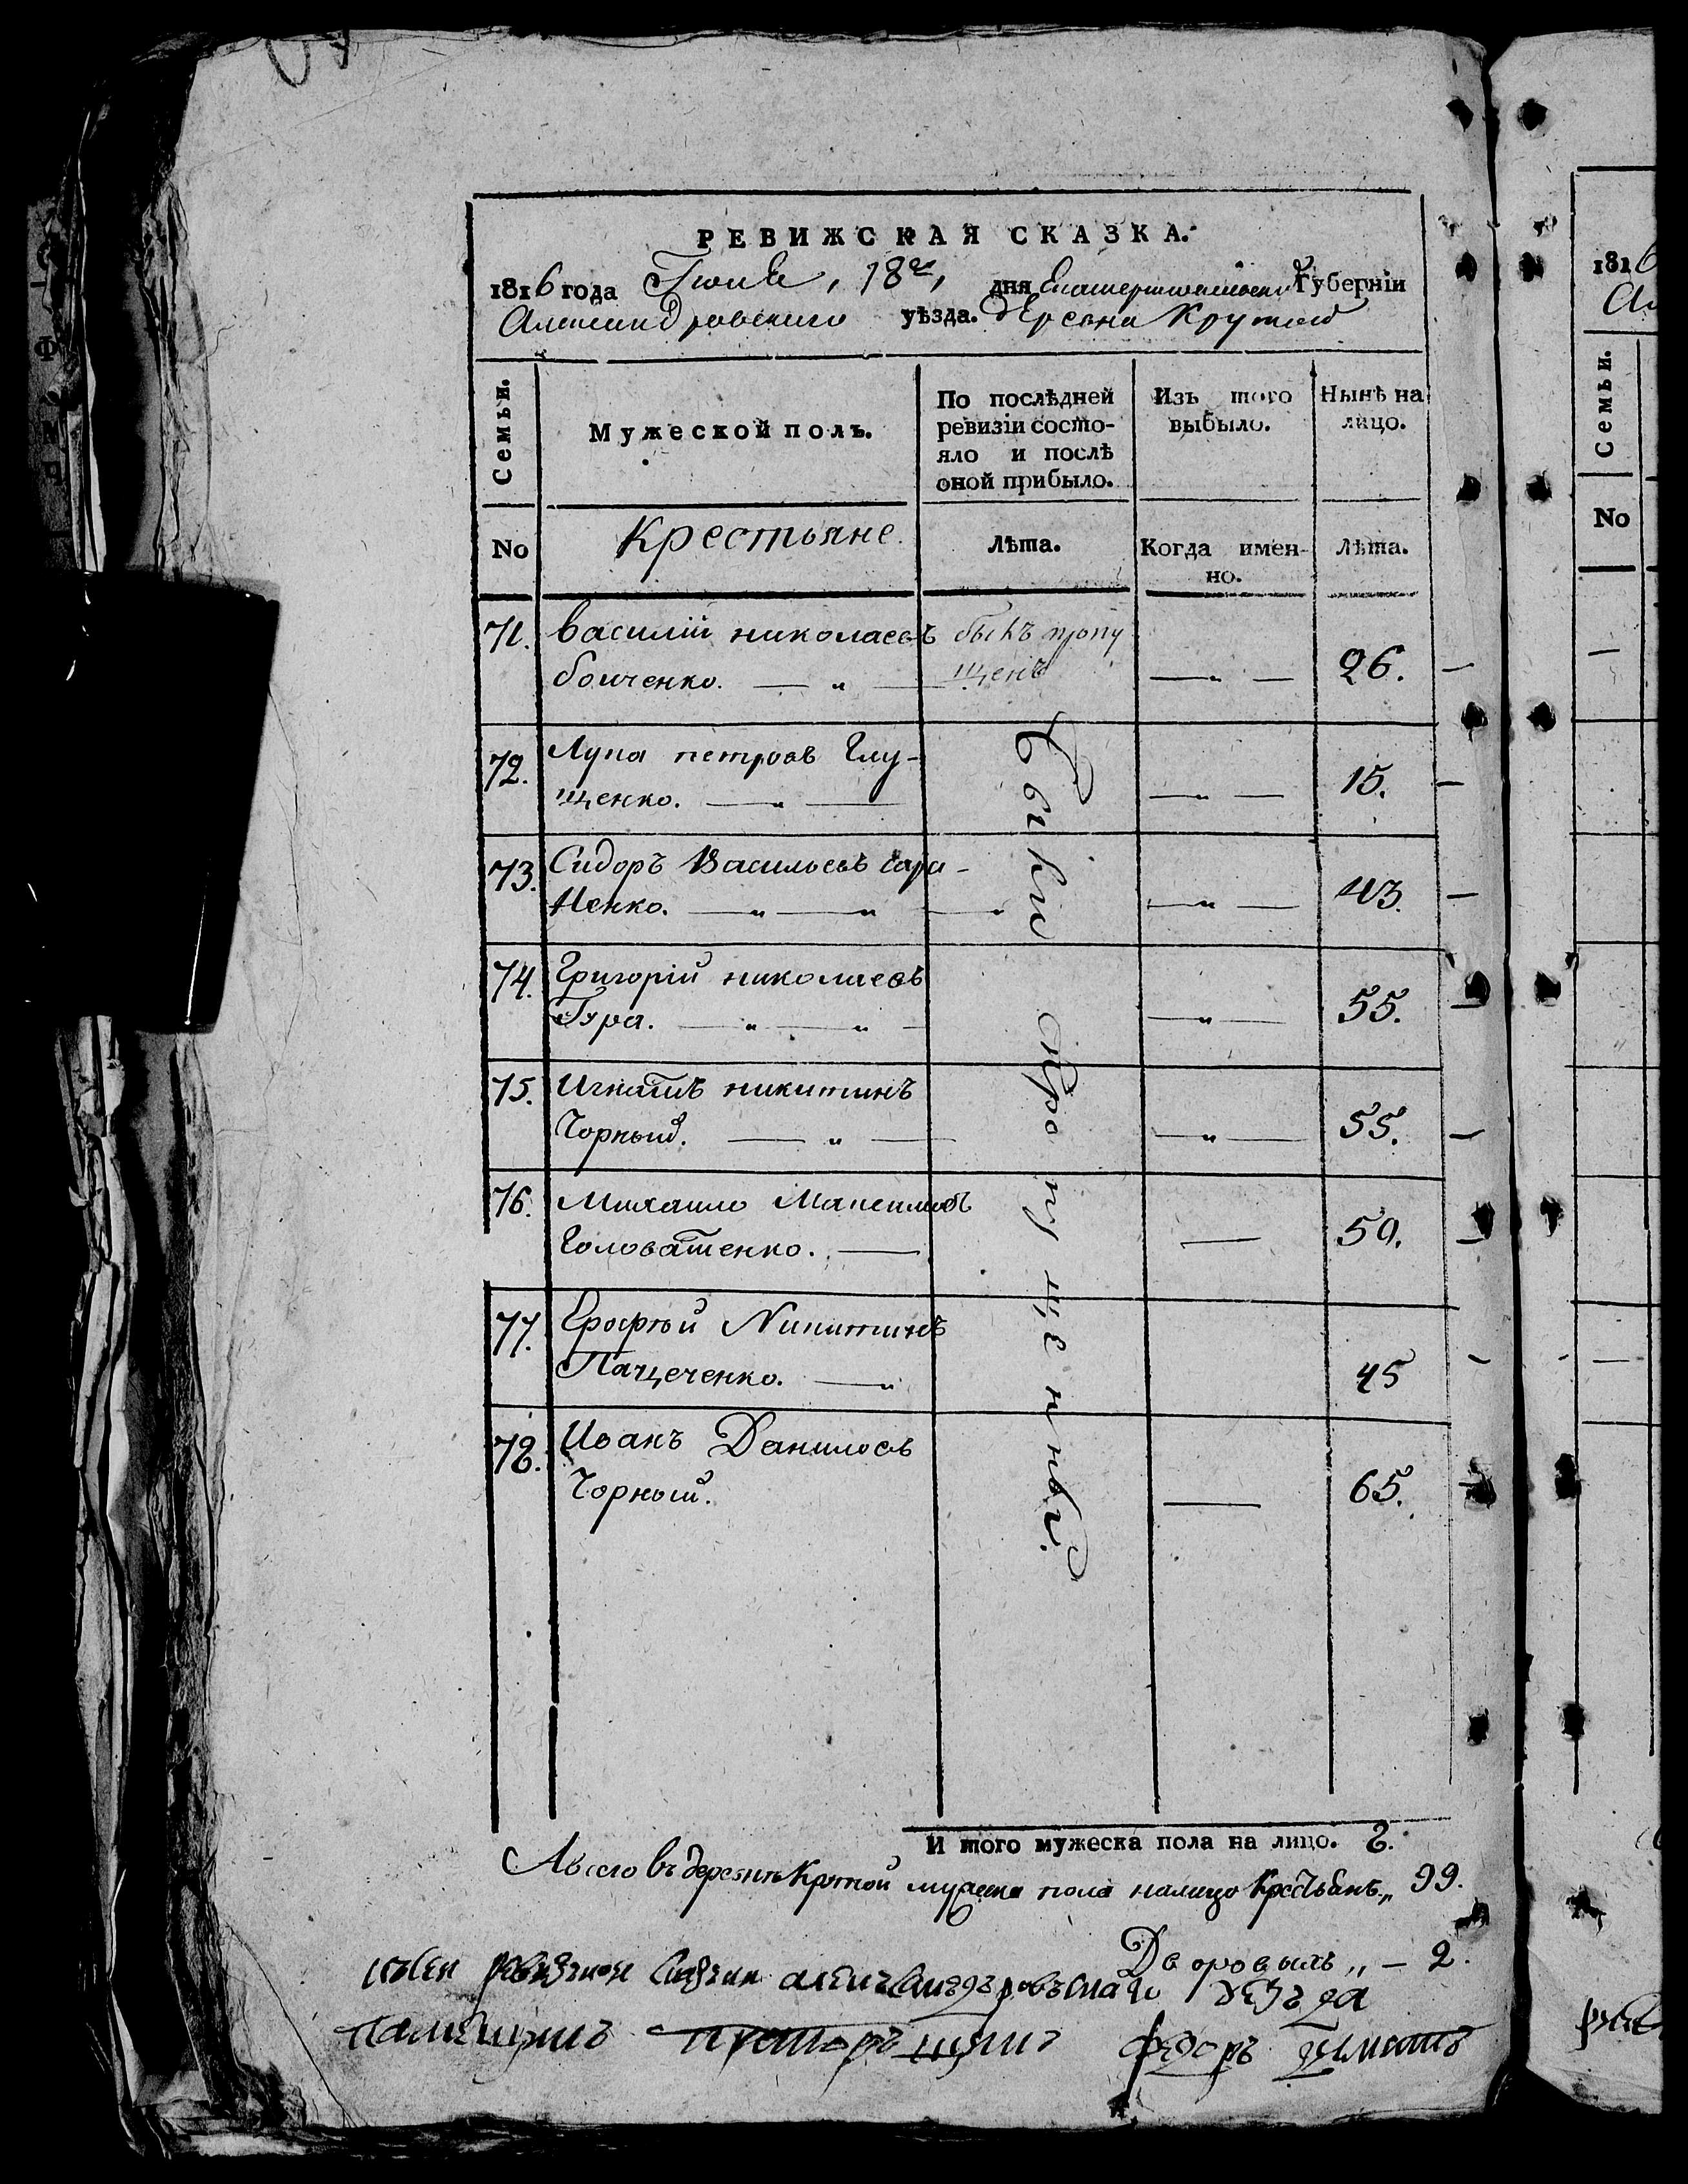 РЕВИЖСКАЯ СКАЗКА.
1816 года Іюля, 18го, дня Екатеринославской Губерніи
Александровского уѣзда. деревни Крутой
Семьи.
Мужеской полъ.
По послѣдней
ревизіи состо-
яло и послѣ
оной прибыло.
Изъ того
выбыло.
Нынѣ на
лицо.
No
Крестьяне.
Лѣта.
Когда имен-
но.
Лѣта.
71. Василій николаевъ былъ пропу
бойченко. — „ — щенъ — „ — 26. —
72. Лупа петровъ Глу-
щенко. — „ — — „ — 15. —
73. Сидоръ Васильевъ
ненко. — „ — „ — „ — „ — 43. —
74. Григорій николаевъ
Гура. — „ — „ — — „ — 55. —
75. Игнатъ никитинъ
Чорный. — „ — — „ — 55. —
76. Михайло Максимовъ
Головатенко. — — 50. —
77. Ерофѣй Никитинъ
Пащеченко. — „ 45 —
78. Иванъ Даниловъ
Чорный. — 65. —
были пропущенны.
И того мужеска пола на лицо. 8.
А всего въ деревнѣ Крутой мужеска пола налицо Крестьянъ „ 99.
Дворовыхъ „ — 2.
уезъда
федоръ
1816
No
Семьи.